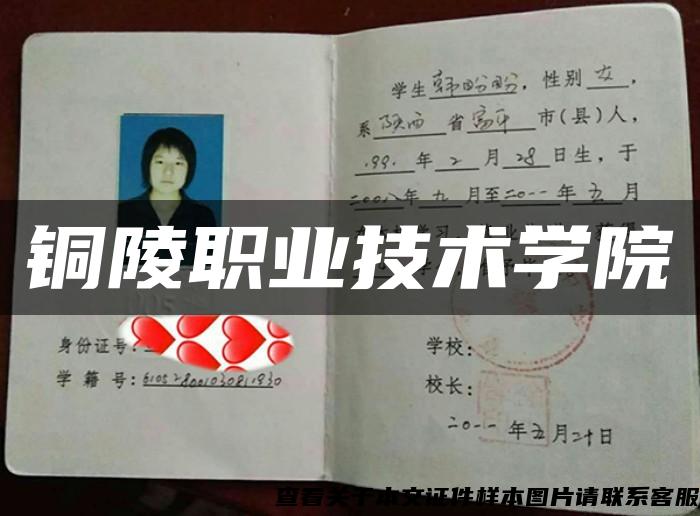 学生韩盼盼，性别女，
系陕西省富平市(县)人，
1991年2月28日生，于
二00八年九月至二0一一年五月
铜陵职业技术学院
身份证号：
学籍号：610528001030811930
学校：
校长：
二0一一年五月二十日
查看关于本文证件样本图片请联系客服